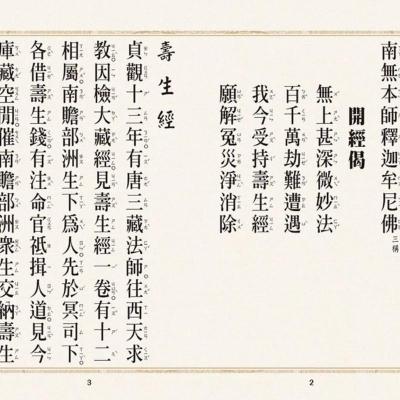 南無本師釋迦牟尼佛
三稱
開經偈
無上甚深微妙法
百千萬劫難遭遇
我今受持壽生經
願解冤災淨消除
2
壽生經
貞觀十三年有唐三藏法師往西天求
教因檢大藏經見壽生經一卷有十二
相屬南贍部洲生下為人先於冥司下
各借壽生錢有注命官祇揖人道見今
庫藏空閒催南贍部洲眾生交納壽生
3